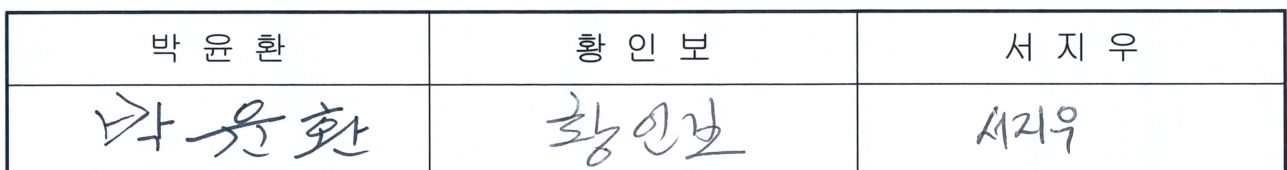 박 윤 환 황 인 보 서 지 우
박윤환 황인보 서지우